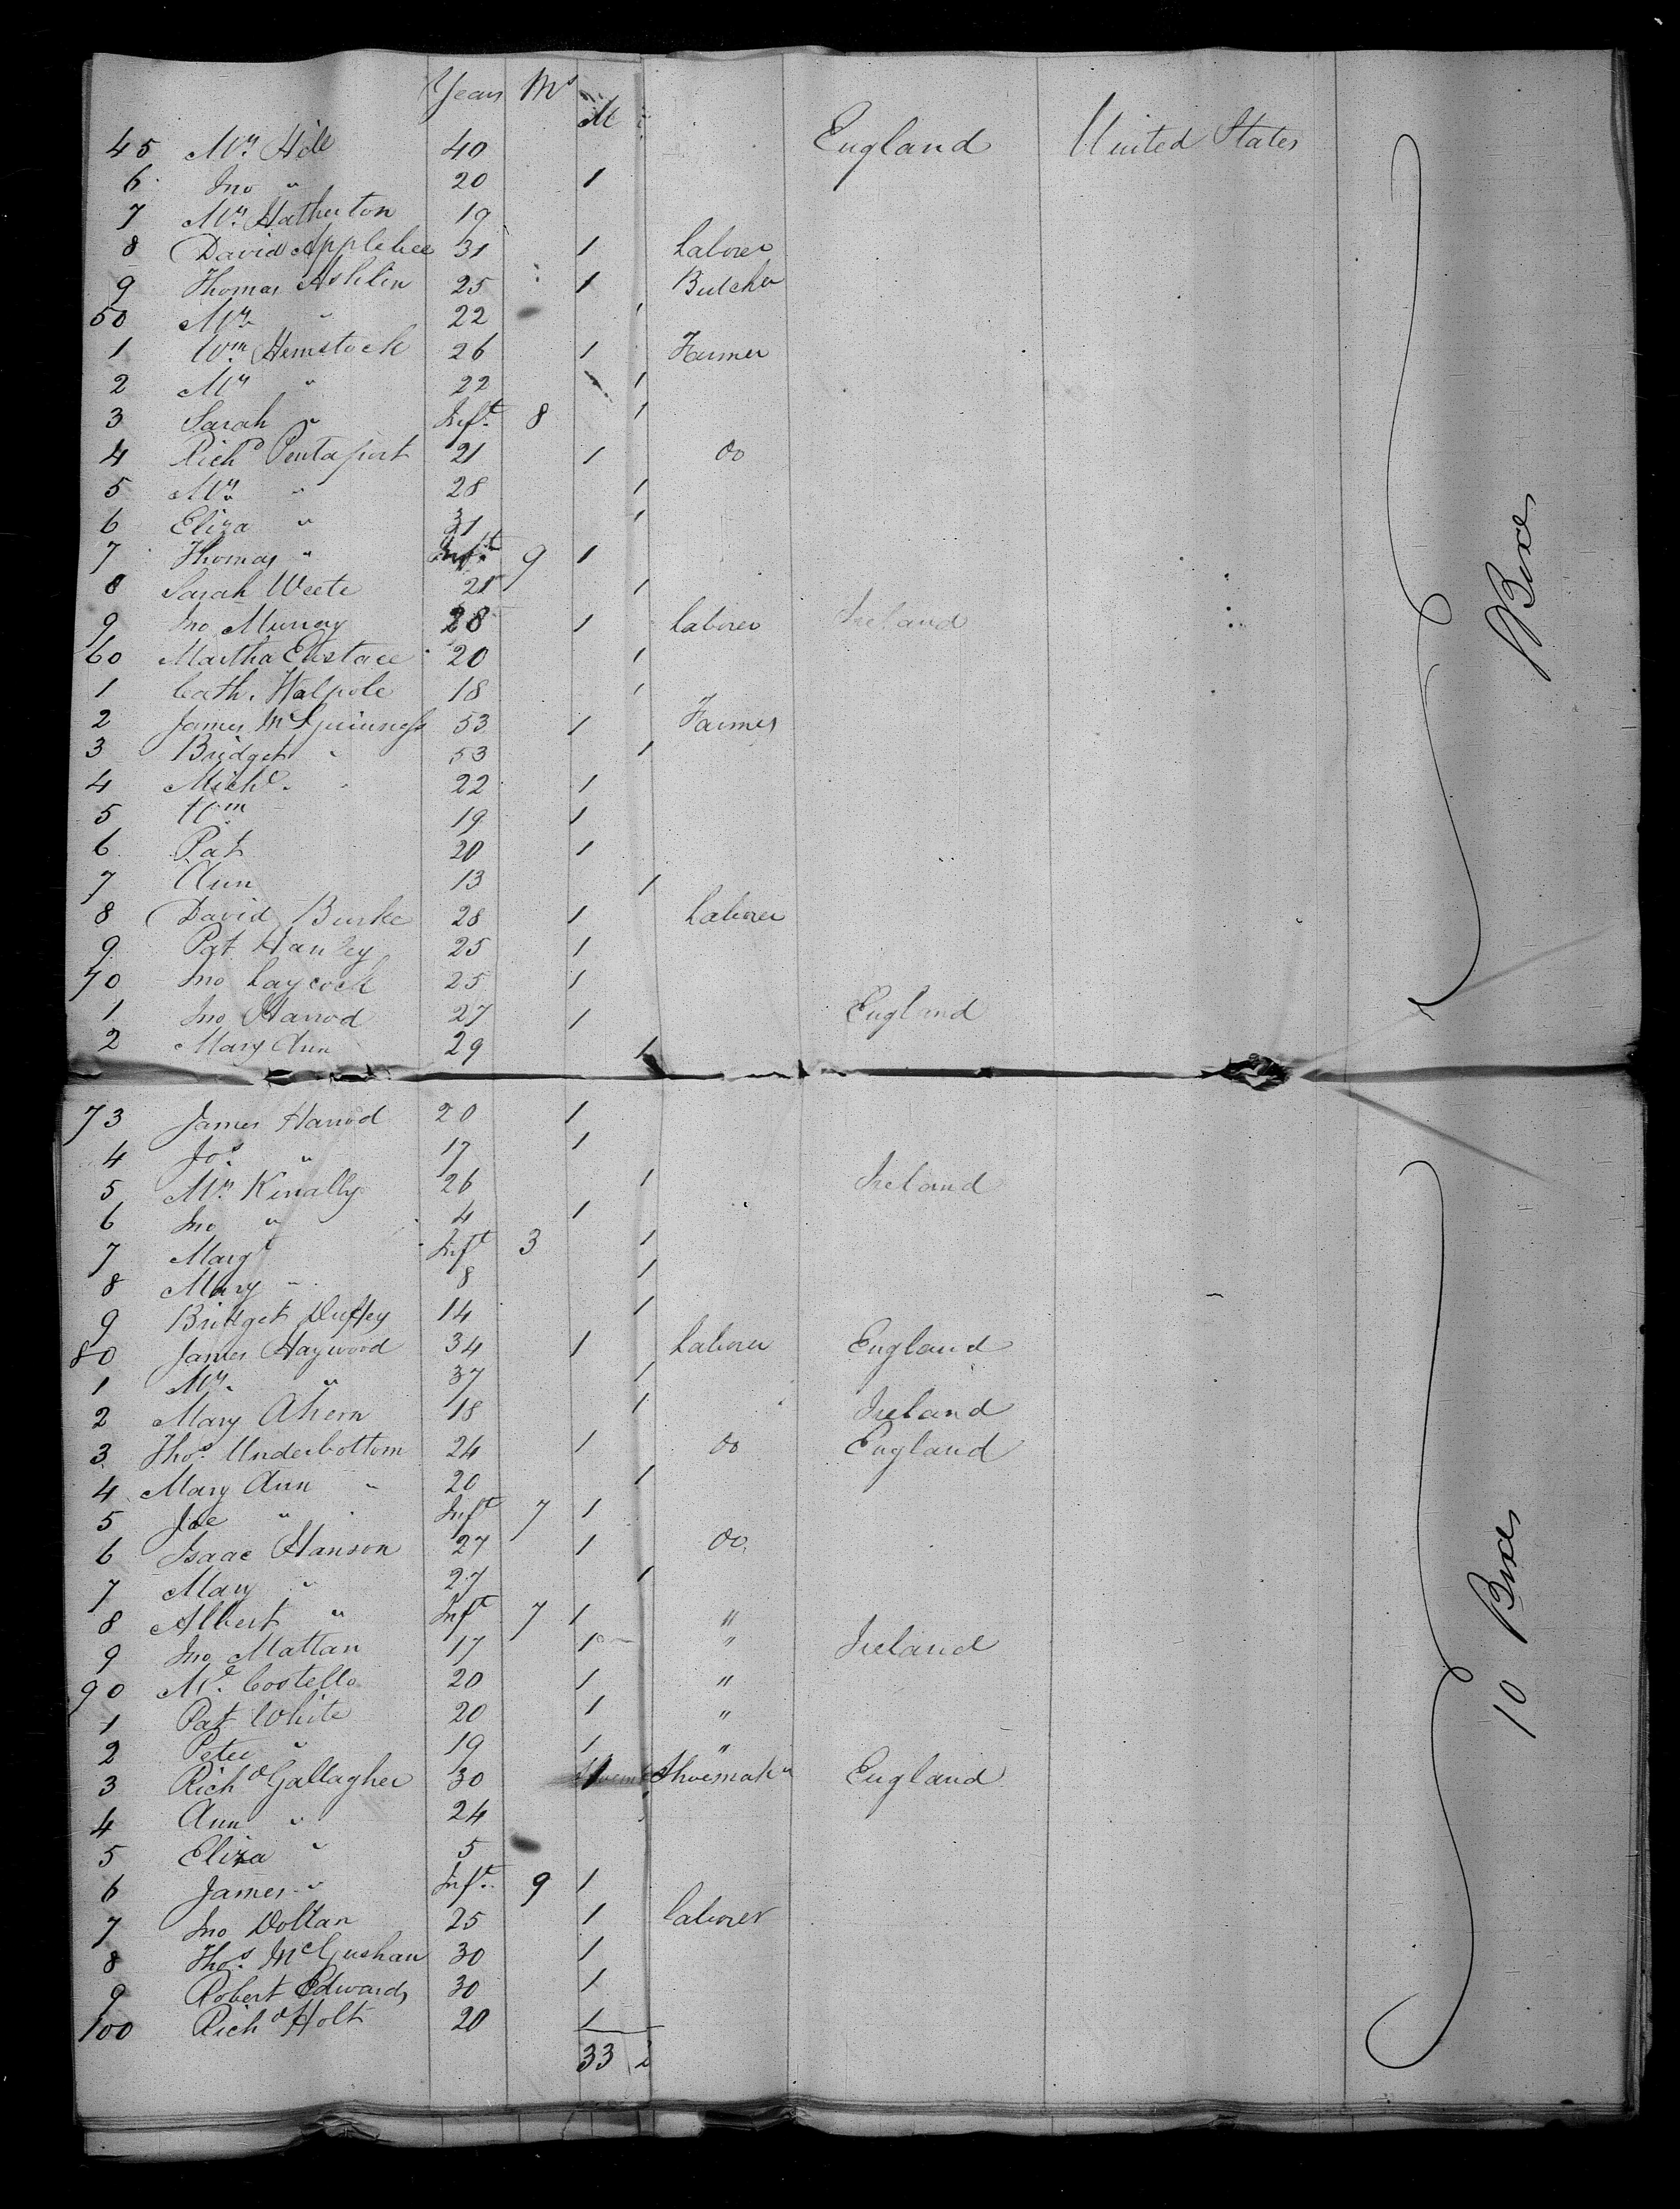 Years Ms M
45 Mrs Hill 40 England United States
6 Jno " 20 1
7 Mrs Hatherton 19
8 David Applebee 31 1 Laborer
9 Thomas Ashlin 25 1 Butcher
50 Mrs " 22 1
1 Wm Hemstock 26 1 Farmer
2 Mrs " 22 1
3 Sarah " Inft 8 1
4 Richd Pentaport 21 1 Do
5 Mrs " 28 1
6 Eliza " 1
7 Thomas " Inft 9 1
8 Sarah Weete 21 1
9 Jno Murray 28 1 Laborer Ireland
60 Martha Eustace 20 1
1 Cath. Walpole 18 1
2 James McGuinness 53 1 Farmer
3 Bridget " 53 1
4 Michl " 22 1
5 Wm 19 1
6 Pat 20 1
7 Ann 13 1
8 David Burke 28 1 Laborer
9 Pat Hanley 25 1
70 Jno Laycock 25 1
1 Jno Harrod 27 1 England
2 Mary Ann 29 1
Boxes
73 James Harrod 20 1
4 Jos " 17 1
5 Mrs Kinally 26 1 Ireland
6 Jno " 4 1
7 Margt Inft 3 1
8 Mary " 8 1
9 Bridget Duffey 14 1
80 James Haywood 34 1 Laborer England
1 Mrs " 37 1
2 Mary Ahern 18 1 Ireland
3 Thos Underbottom 24 1 Do England
4 Mary Ann " 20 1
5 Joe " Inft 7 1
6 Isaac Hanson 27 1 Do
7 Mary " 27 1
8 Albert " Inft 7 1 "
9 Jno Mattan 17 1 " Ireland
90 Ml Costello 20 1 "
1 Pat White 20 1 "
2 Peter " 19 1 "
3 Richd Gallagher 30 1 Shoemaker England
4 Ann " 24
5 Eliza " 5
6 James " Inft 9 1
7 Jno Dollan 25 1 Laborer
8 Thos McGushan 30 1
9 Robert Edwards 30 1
100 Richd Holt 20 1
33
10 Boxes